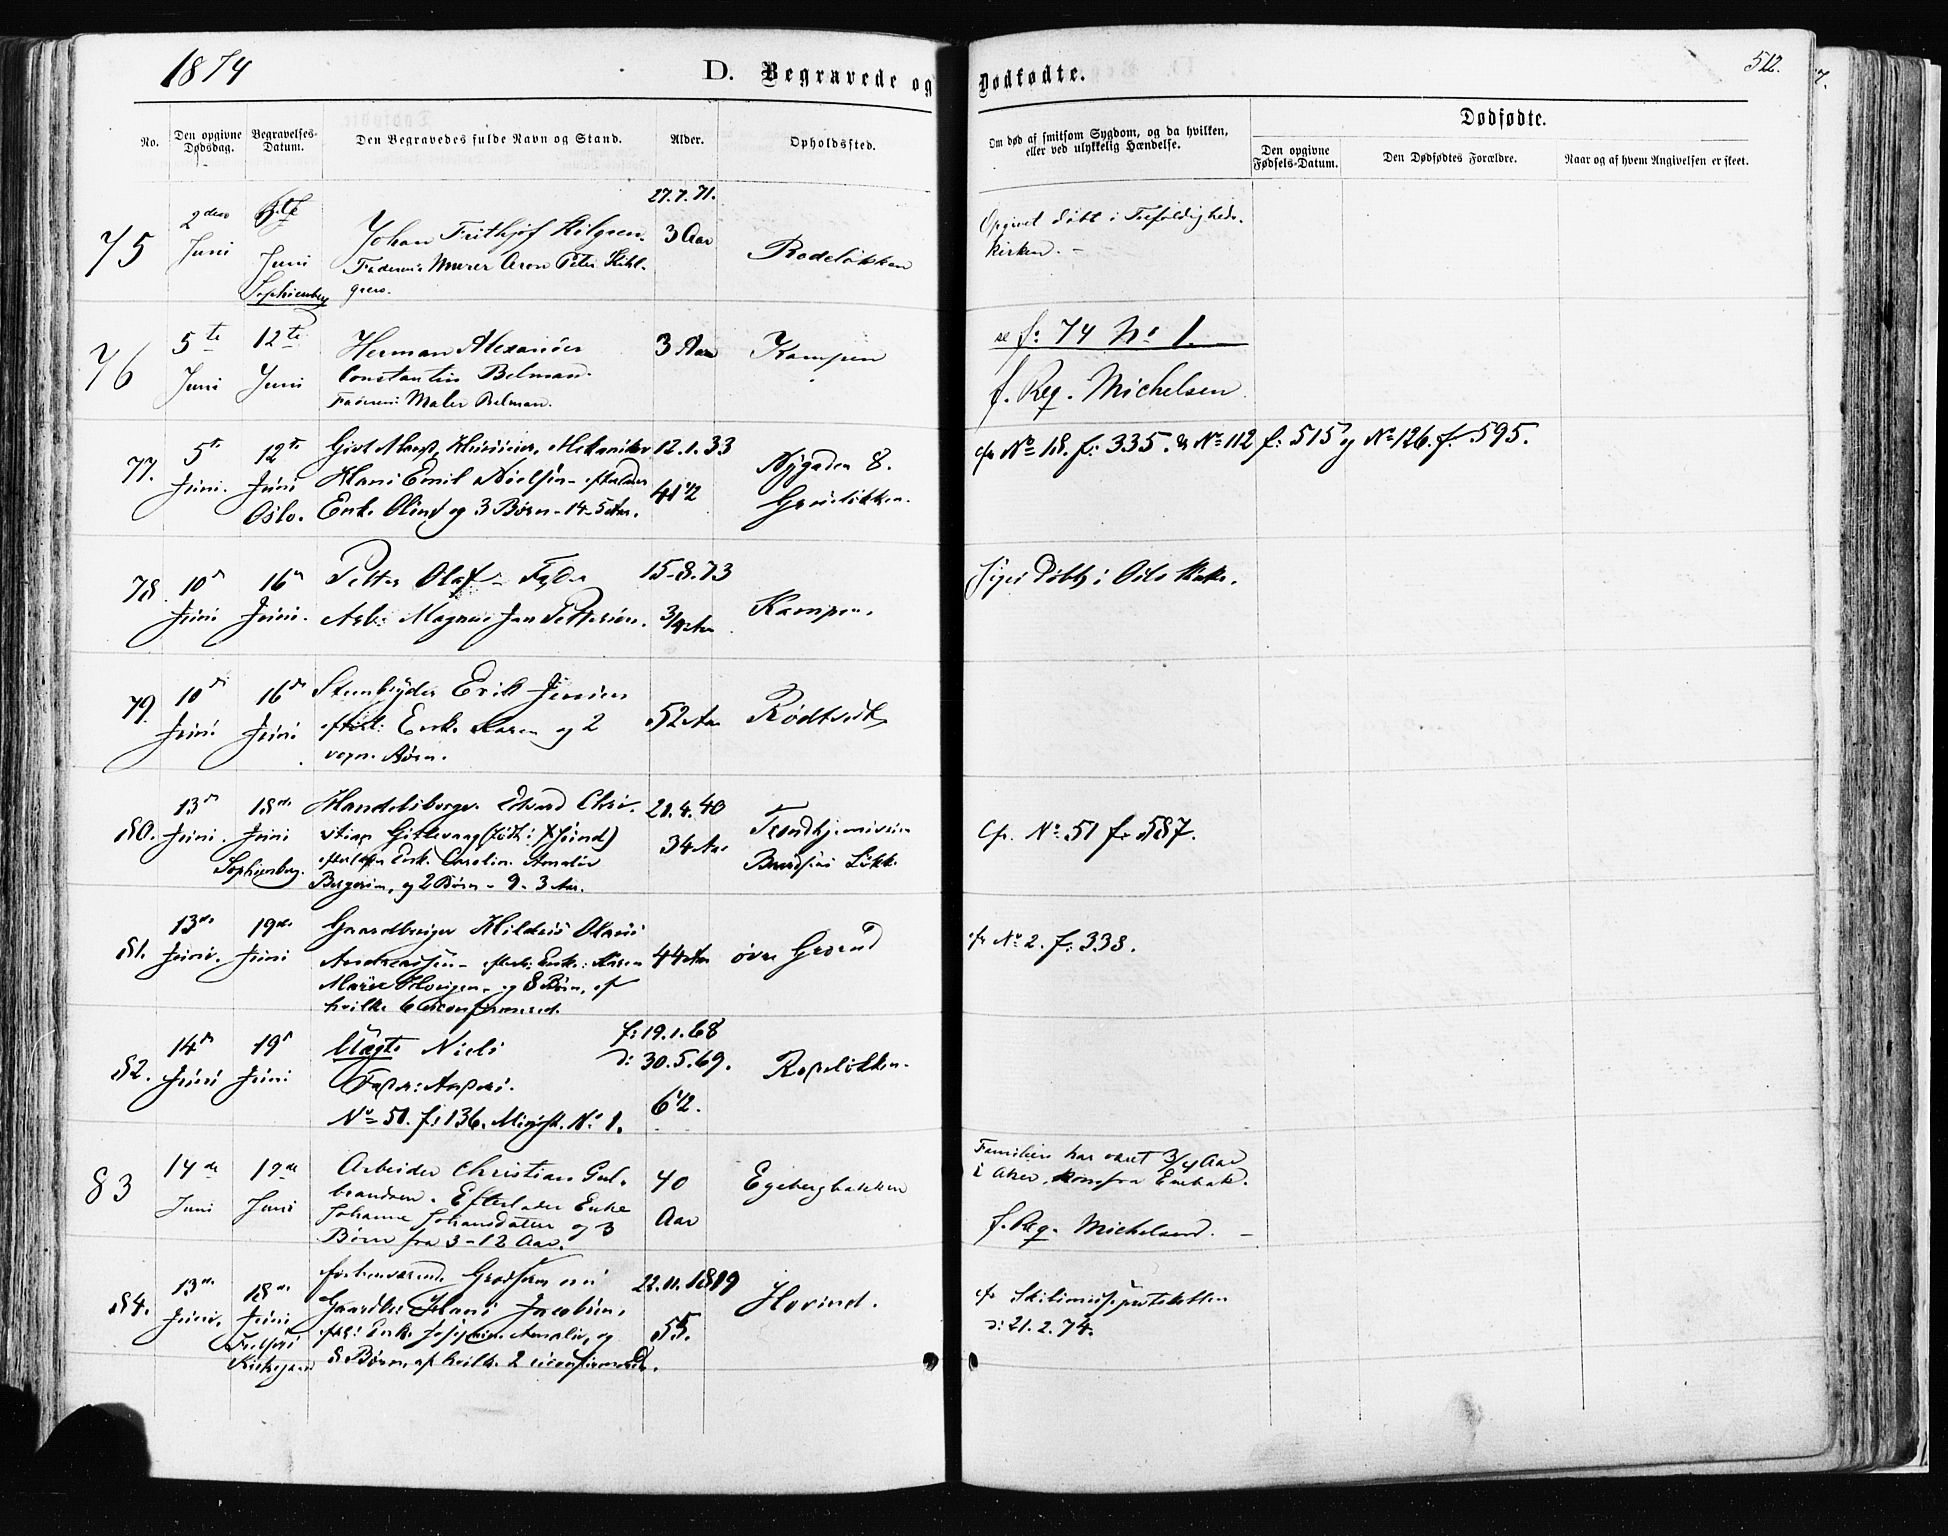 1874
D. Begravede og Dødfødte.
512.
No.
Den opgivne Dødsdag.
Begravelses-Datum.
Den Begravedes fulde Navn og Stand.
Alder.
Opholdssted.
Om død af smitsom Sygdom, og da hvilken, eller ved ulykkelig Hændelse.
Dødfødte.
Den opgivne Fødsels-Datum.
Den Dødfødtes Forældre.
Naar og af hvem Angivelsen er skeet.
75
2den
Juni
Juni
Sophienberg
Johan Frithjof
Murer Aron Peter Kihl-
green.
27.7.71.
3 Aar
Rodeløkken
Opgivet døbt i Trefoldigheds-
kirken. -
76
5te
Juni
12te
Juni
Herman Alexander
Constantin Belman.
Faderen: Maler Belman.
3 Aar
Kampen
se f: 74 No 1.
f. Reg. Michelsen
77.
5te
Juni.
12te
Juni
Oslo.
Gift Mekaniker
Hans Emil Nielsen - efterlader
Enke Oline og 3 Børn - 14-5 Aar.
12.1.33
41 1/2
Nygaden 8.
Grünløkken.
cfr No 18. f: 335. & No 112 f: 515 og No 126. f. 595.
78.
10de
Juni
16de
Juni.
Petter Olaf - Fader
Arb: Magnus Jan Pettersen.
15-8.73
3/4 Aar
Kampen.
Siges døbt i Oslo Kirke.
79.
10de
Juni
16de
Juni
Stenbryder Erik Jensen
efterl: Enke Karen og 2
voxn. Børn.
52 Aar
Rødtvedt
80.
13de
Juni.
18de
Juni
Sophienberg.
Handelsborger Edvard Chri-
stian
efterlader Enke Caroline Amalie
Bergersen, og 2 Børn - 9-3 Aar.
21.4.40
34 Aar
Trondhjemsveien
Løkke
Cfr. No 51 f. 587.
81.
13de
Juni.
19de
Juni
Gaardbruger Olsen
Andreassen - efterl: Enke: Karen
Marie og 8 Børn, af
hvilke 6 uconfirmered.
44 Aar
øvre Grorud
cfr No 2. f: 338.
82.
14de
Juni
19de
Juni
Uægte Niels
Fader: Anders.
No 51. f: 136. Minist. No 1.
f: 19.1.68
d: 30.5.69.
6 1/2.
Rodeløkken.
83
14de
Juni
19de
Juni
Arbeider Christian Gul-
brandsen. Efterlader Enke
Johanne Johansdatter og 3
Børn fra 3-12 Aar.
40
Aar
Egebergbakken
Familien har været 3/4 Aar
i Aker, kom fra Enebak.
f. Reg. Michelsen. -
84.
13de
Juni.
18de
Juni
Kirkegaard
forhenværende
Gaardbr. Hans Jacobsen.
efterl: Enke Josephine Amalie, og
8 Børn, af hvilke 2 uconfirmered.
22.11.1819
55.
Hovind.
cfr Skilsmisseprotokollen
d: 21.2.74.